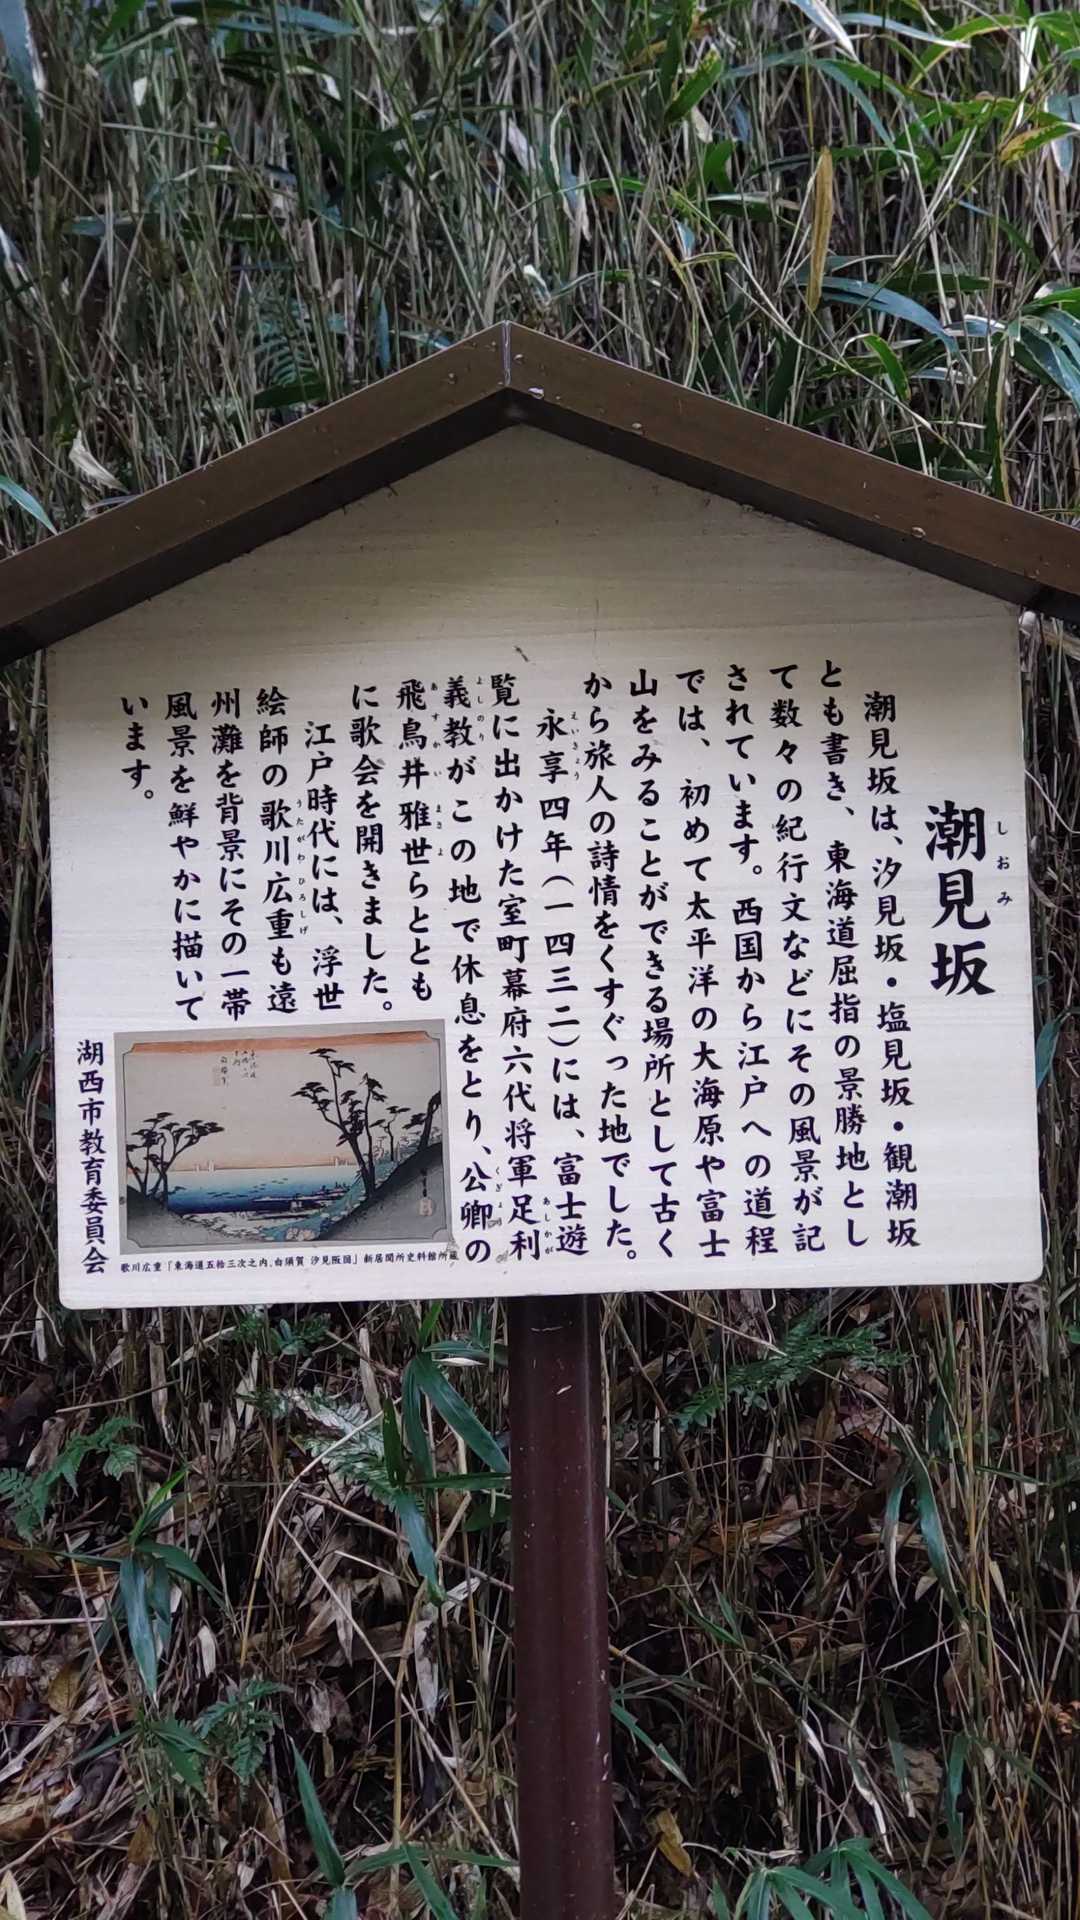 潮見坂
しおみ
潮見坂は、汐見坂・塩見坂・観潮坂
とも書き、東海道屈指の景勝地とし
て数々の紀行文などにその風景が記
されています。西国から江戸への道程
では、初めて太平洋の大海原や富士
山をみることができる場所として古く
から旅人の詩情をくすぐった地でした。
永享四年(一四三二)には、富士遊
えいきょう
覧に出かけた室町幕府六代将軍足利
あしかが
義教がこの地で休息をとり、公卿の
よしのり
くぎょう
飛鳥井雅世らととも
あすかい
まさよ
に歌会を開きました。
江戸時代には、浮世
絵師の歌川広重も遠
うたがわひろしげ
州灘を背景にその一帯
風景を鮮やかに描いて
います。
湖西市教育委員会
歌川広重「東海道五拾三次之内、白須賀 汐見阪図」新居関所史料館所蔵